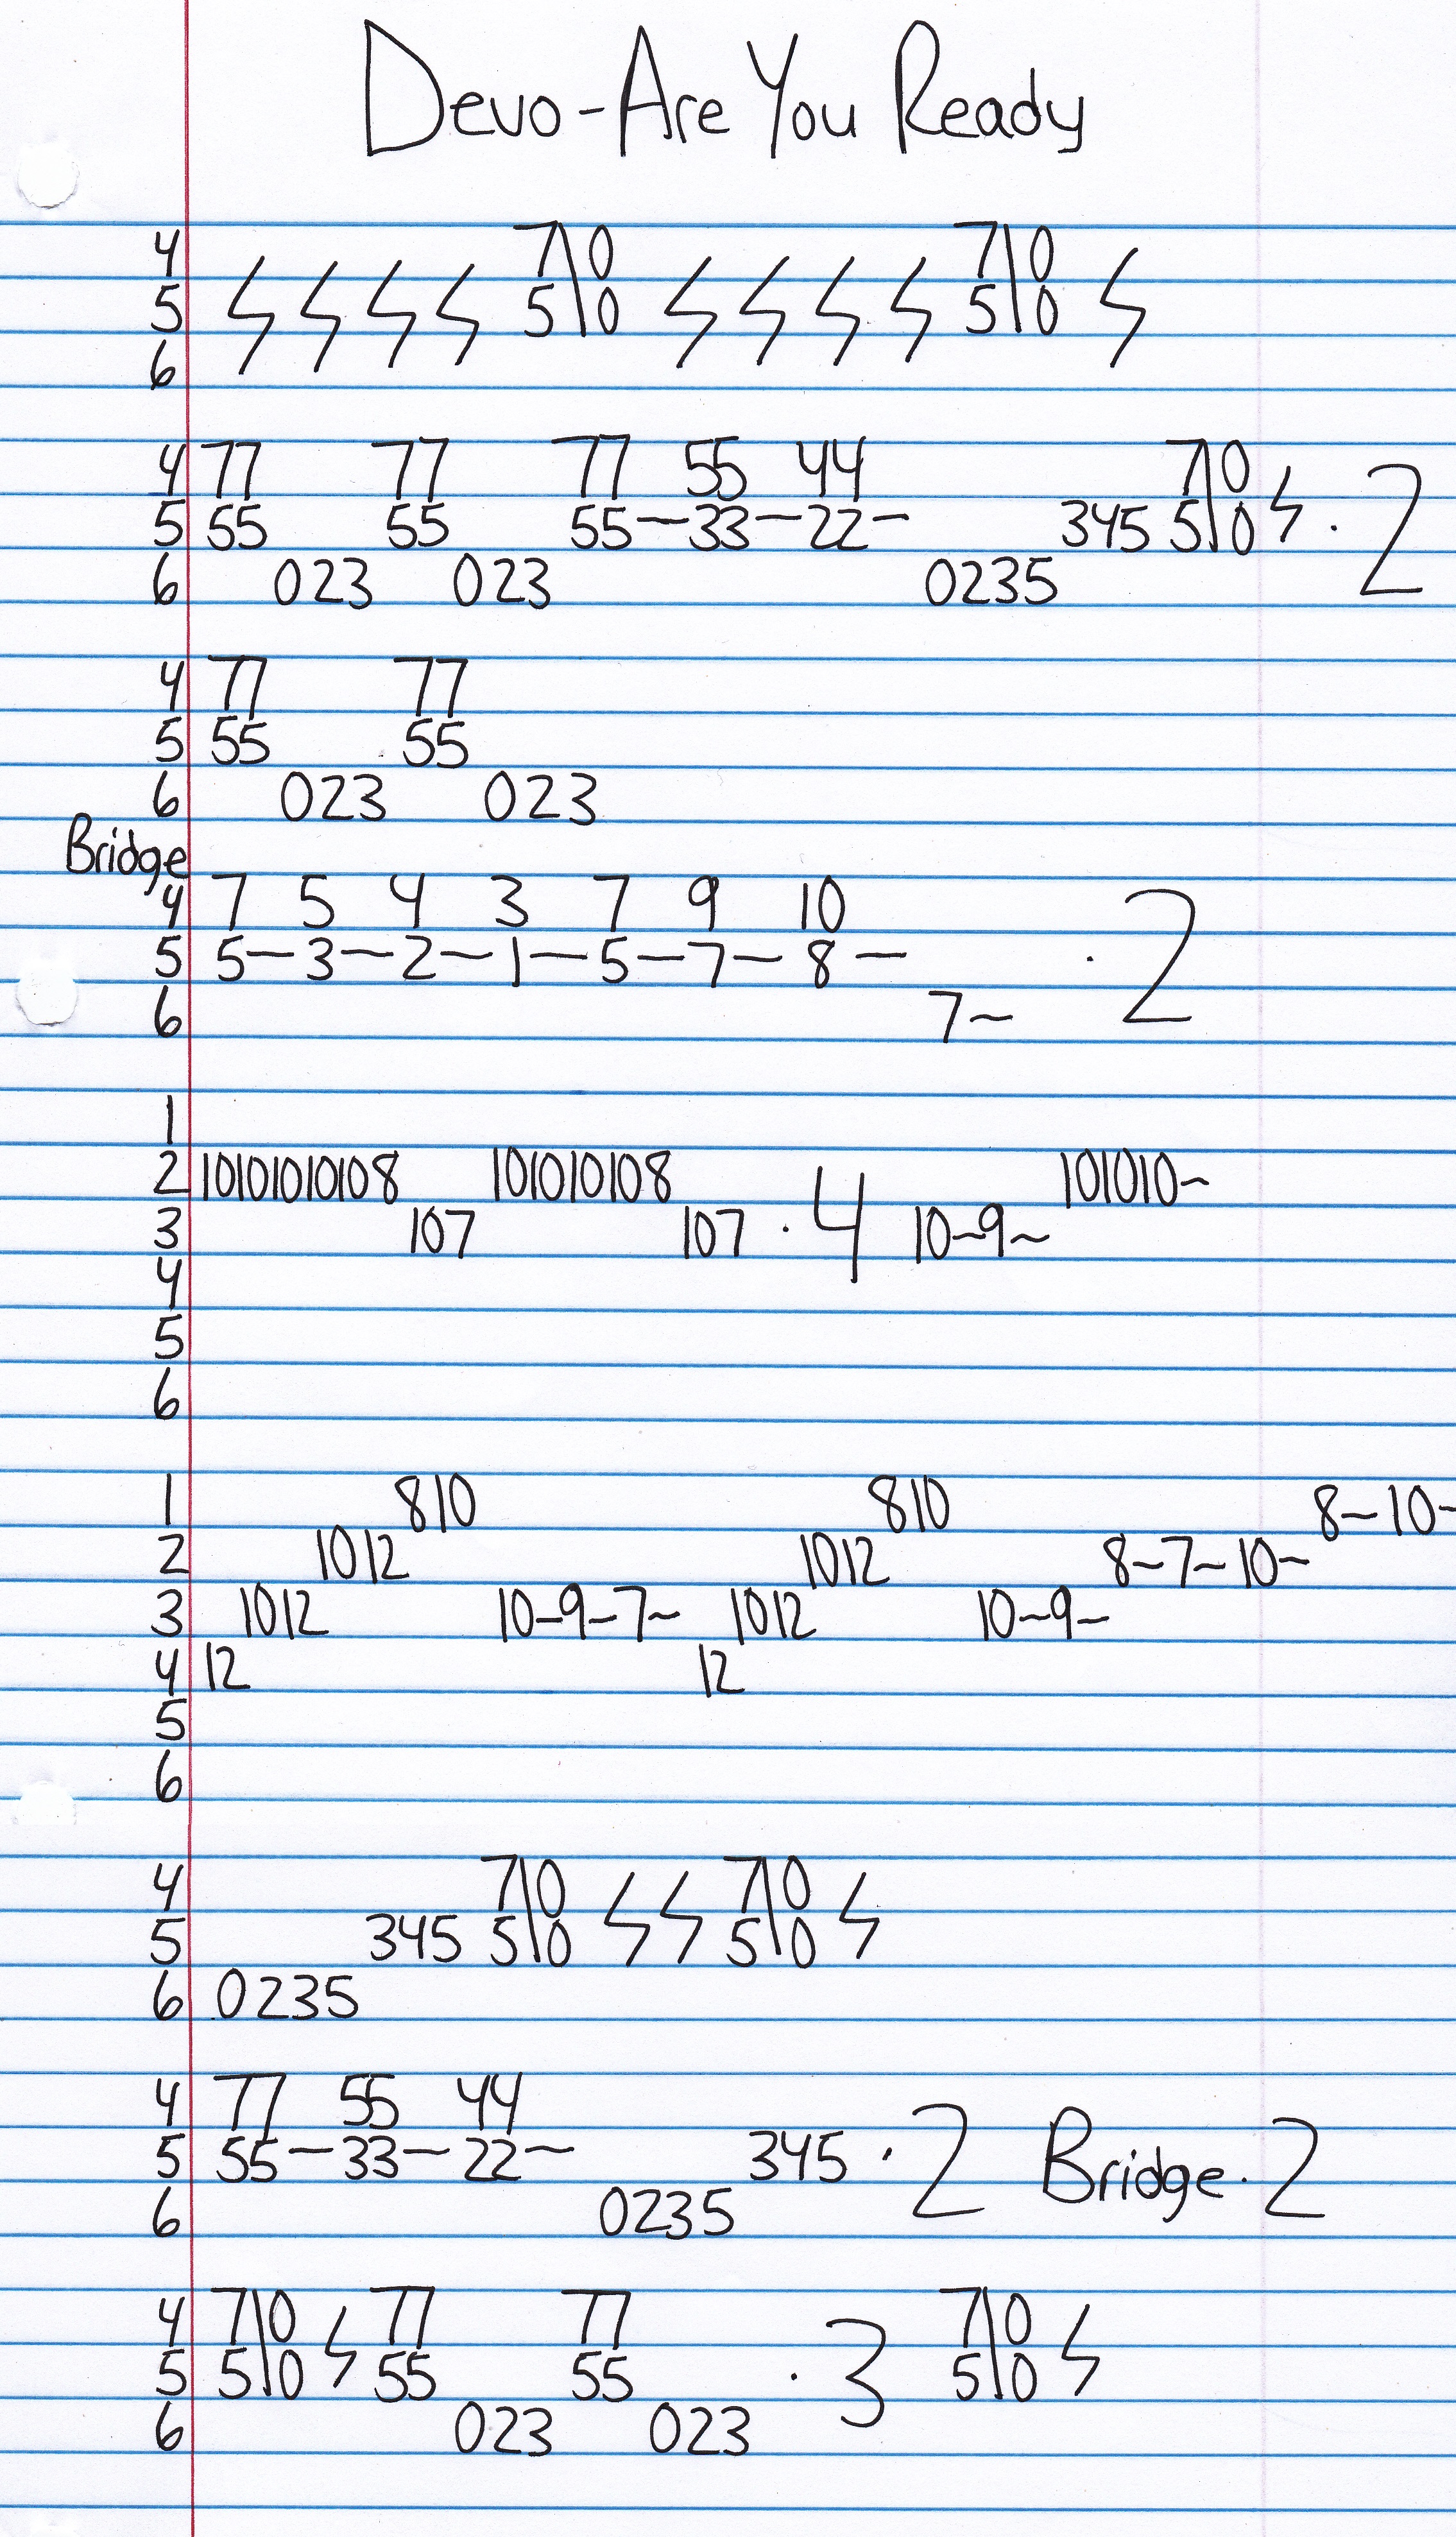 Devo - Are You Ready
4 7\0 7\0
5 ϟ ϟ ϟ ϟ 5\0 ϟ ϟ ϟ ϟ 5\0 ϟ
6
4 77 77 77 55 44 7\0
5 55 55 55~33~22~ 345 5\0 ϟ · 2
6 023 023 0235
4 77 77
5 55 55
6 023 023
Bridge
4 7 5 4 3 7 9 10
5 5~3~2~1~5~7~8~ · 2
6 7~
1
2 10101010108 101010108 101010~
3 107 107 · 4 10~9~
4
5
6
1 810 810 8~10~
2 1012 1012 8~7~10~
3 1012 10~9~7~ 1012 10~9~
4 12 12
5
6
4 7\0 7\0
5 345 5\0 ϟ ϟ 5\0 ϟ
6 0235
4 77 55 44
5 55~33~22~ 345 · 2 Bridge · 2
6 0235
4 7\0 77 77 7\0
5 5\0 ϟ 55 55 · 3 5\0 ϟ
6 023 023